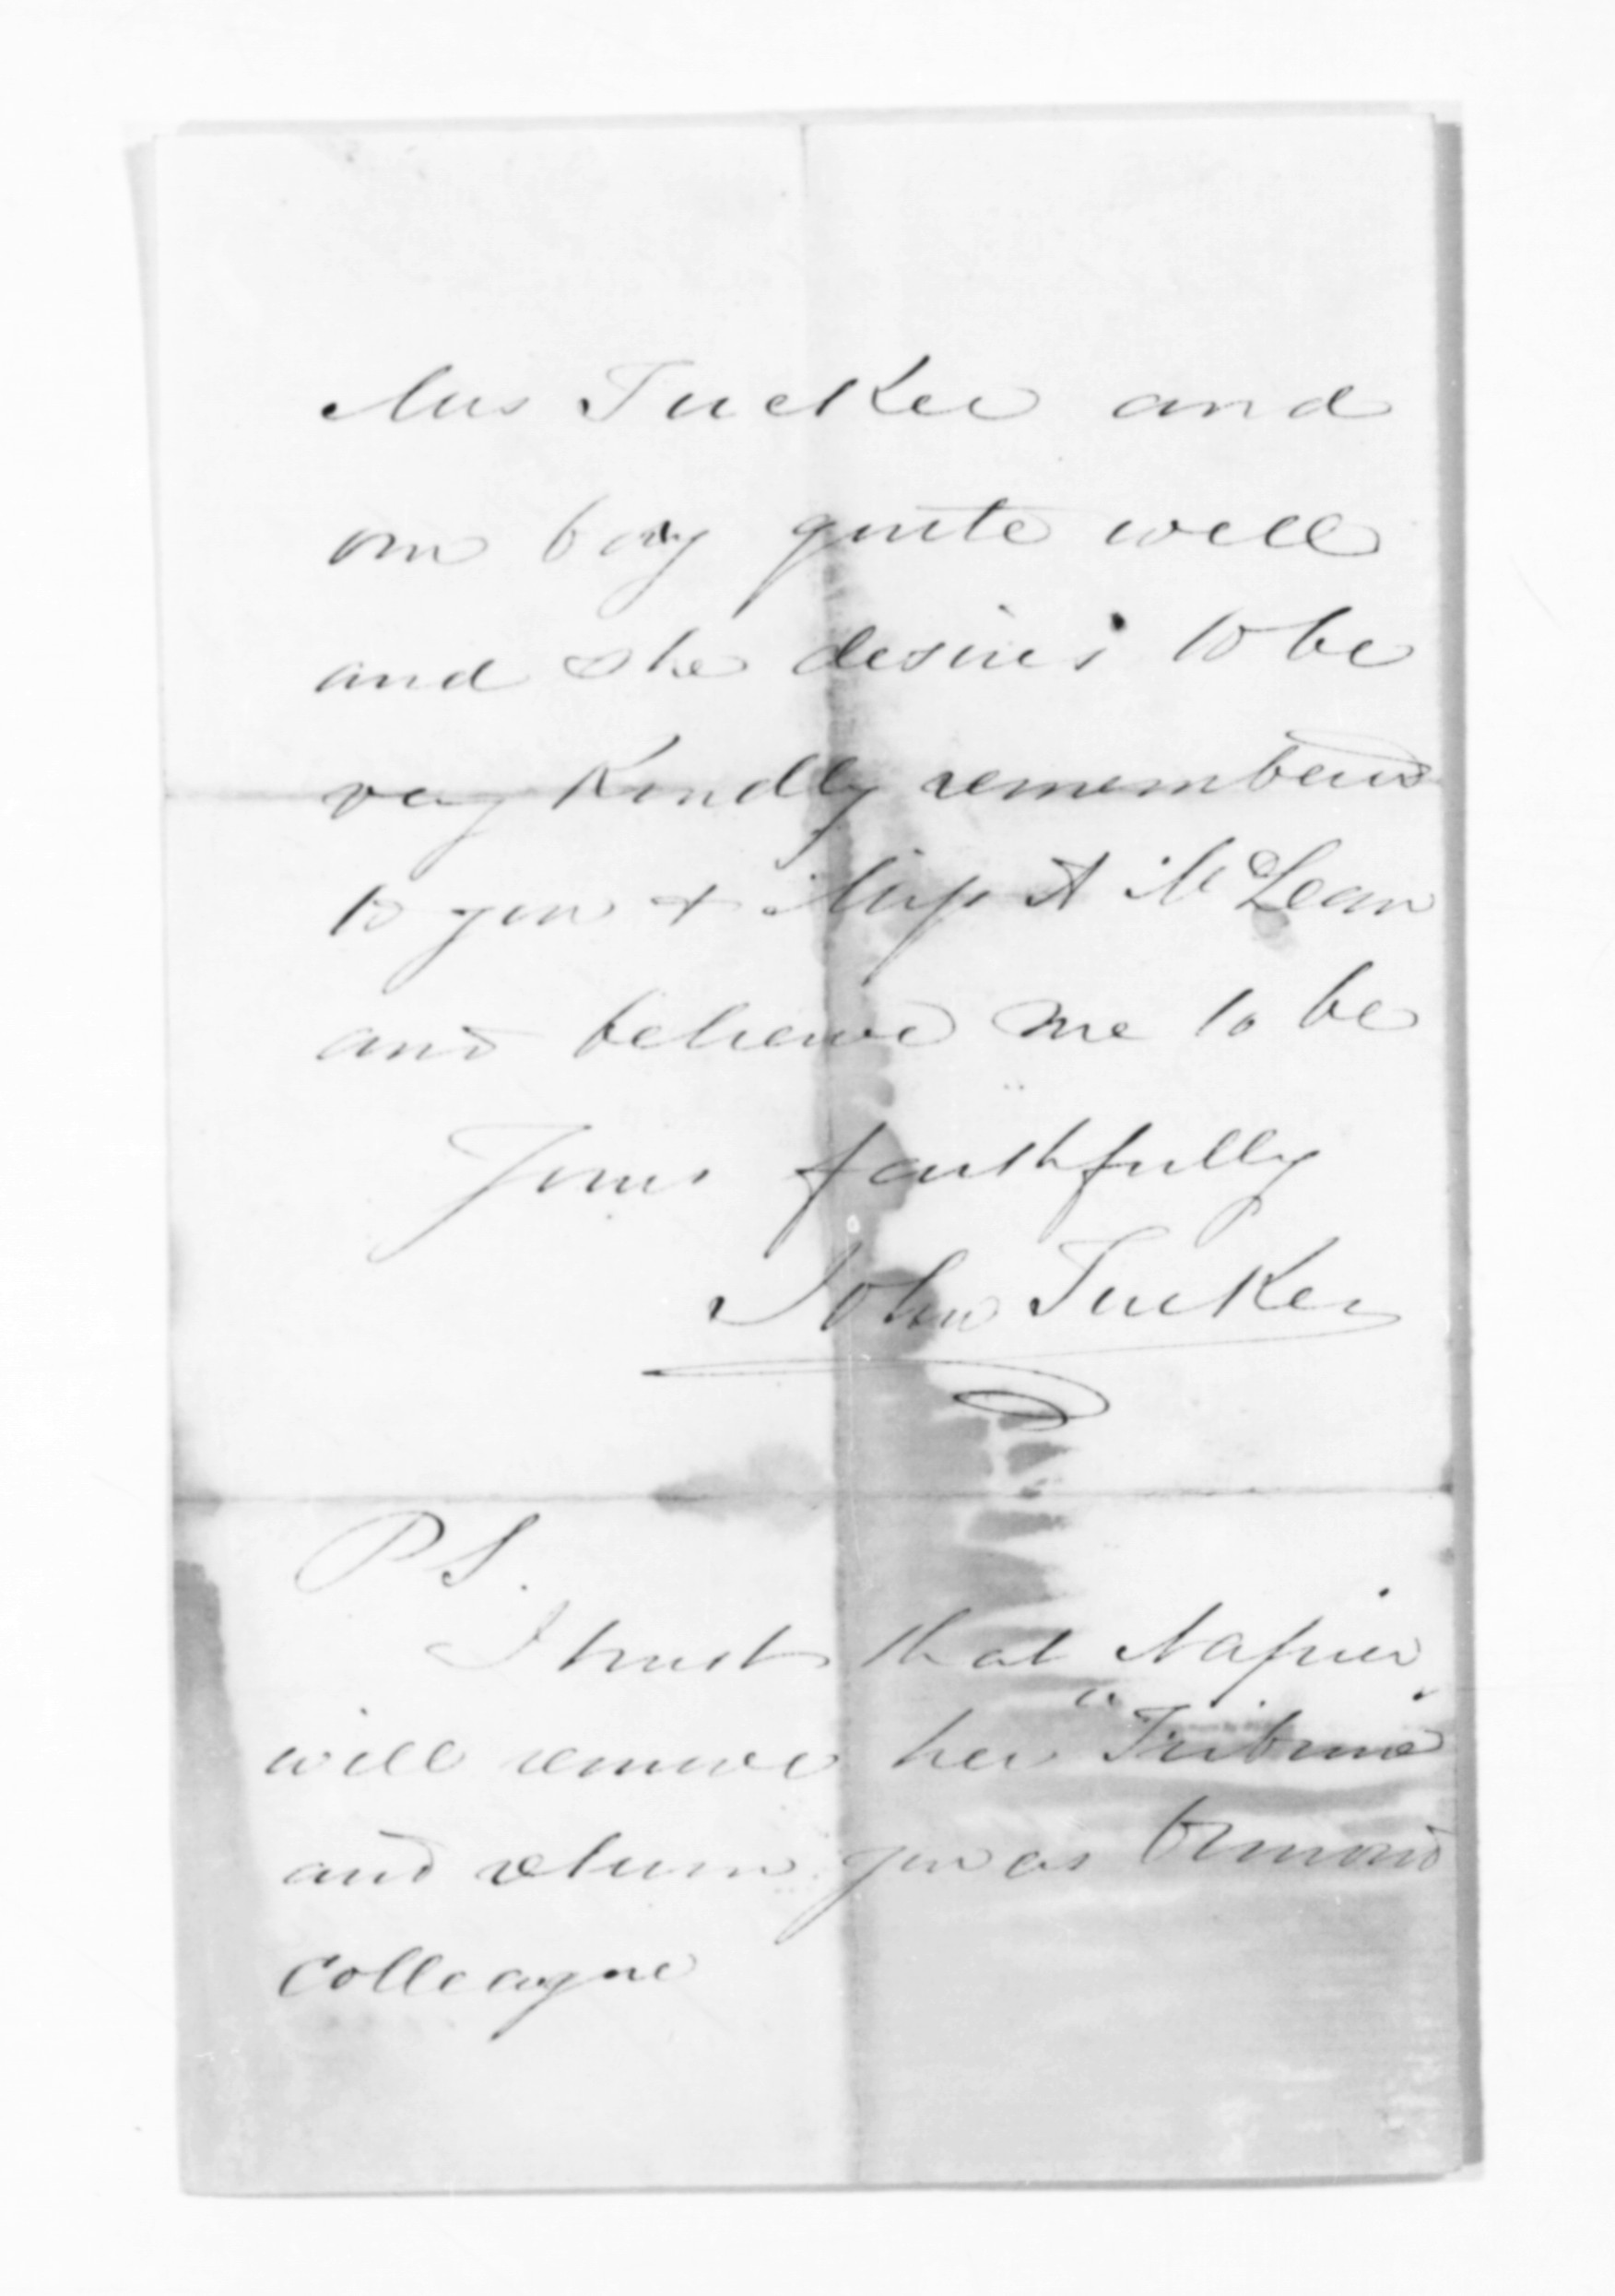 Mrs Tucker and
our boy quite well
and she desires to be
very Kindly remembered
to you & Miss A McLean
and believe me to be
Yours faithfully
John Tucker
P S.
I trust that Napier
will remove her "Tribune"
and return you as Ormond
Colleague